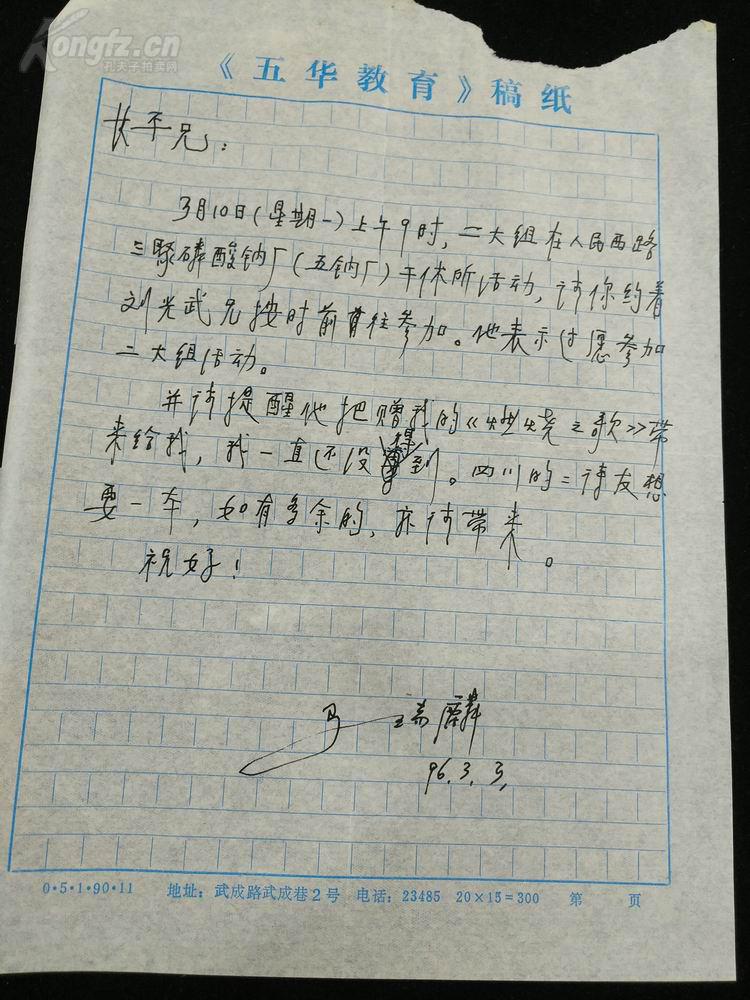 Kongfz.cn
孔夫子拍卖网
《五华教育》稿纸
平兄：
3月10日(星期一)上午9时,二大组在人民西路
三聚磷酸钠厂(五钠厂)干休所活动,请你约着
刘光武兄按时前往参加。他表示过愿参加
二大组活动。
并请提醒他把赠我的《燃烧之歌》带
来给我,我一直还没得到。四川的一诗友想
要一本,如有多余的,亦请带来。
祝好!
马瑞麟
96.3.3,
0·5·1·90·11 地址：武成路武成巷2号 电话：23485 20×15=300 第 页